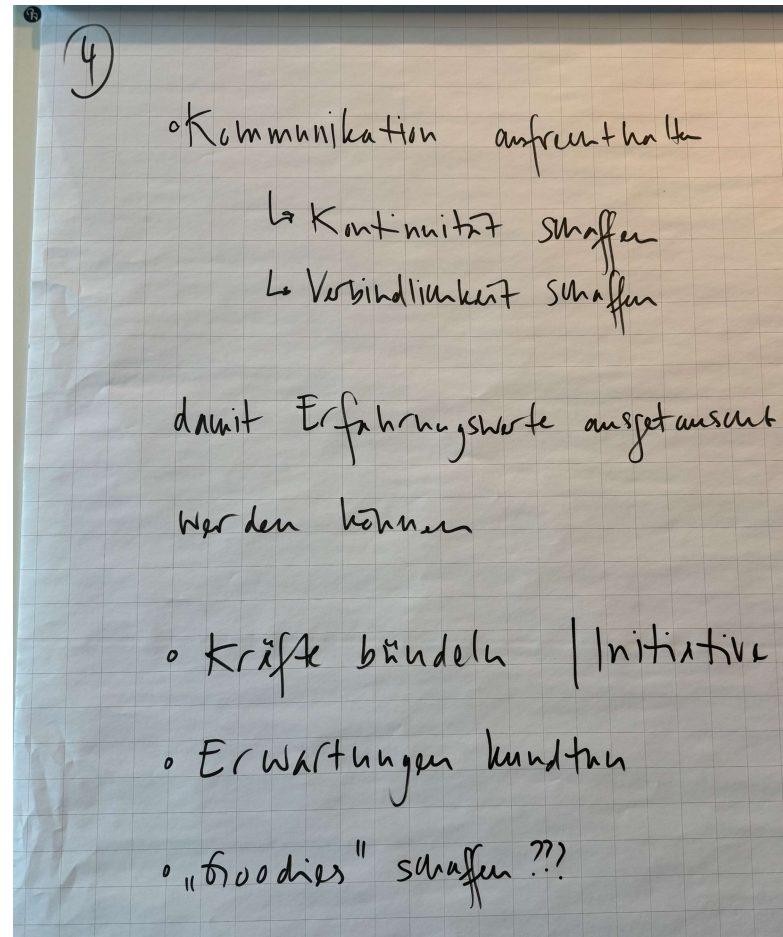 4
• Kommunikation aufrechthalten
↳ Kontinuität schaffen
↳ Verbindlichkeit schaffen
damit Erfahrungswerte ausgetauscht
werden können
• Kräfte bündeln | Initiative
• Erwartungen kundtun
• „Goodies" schaffen ???